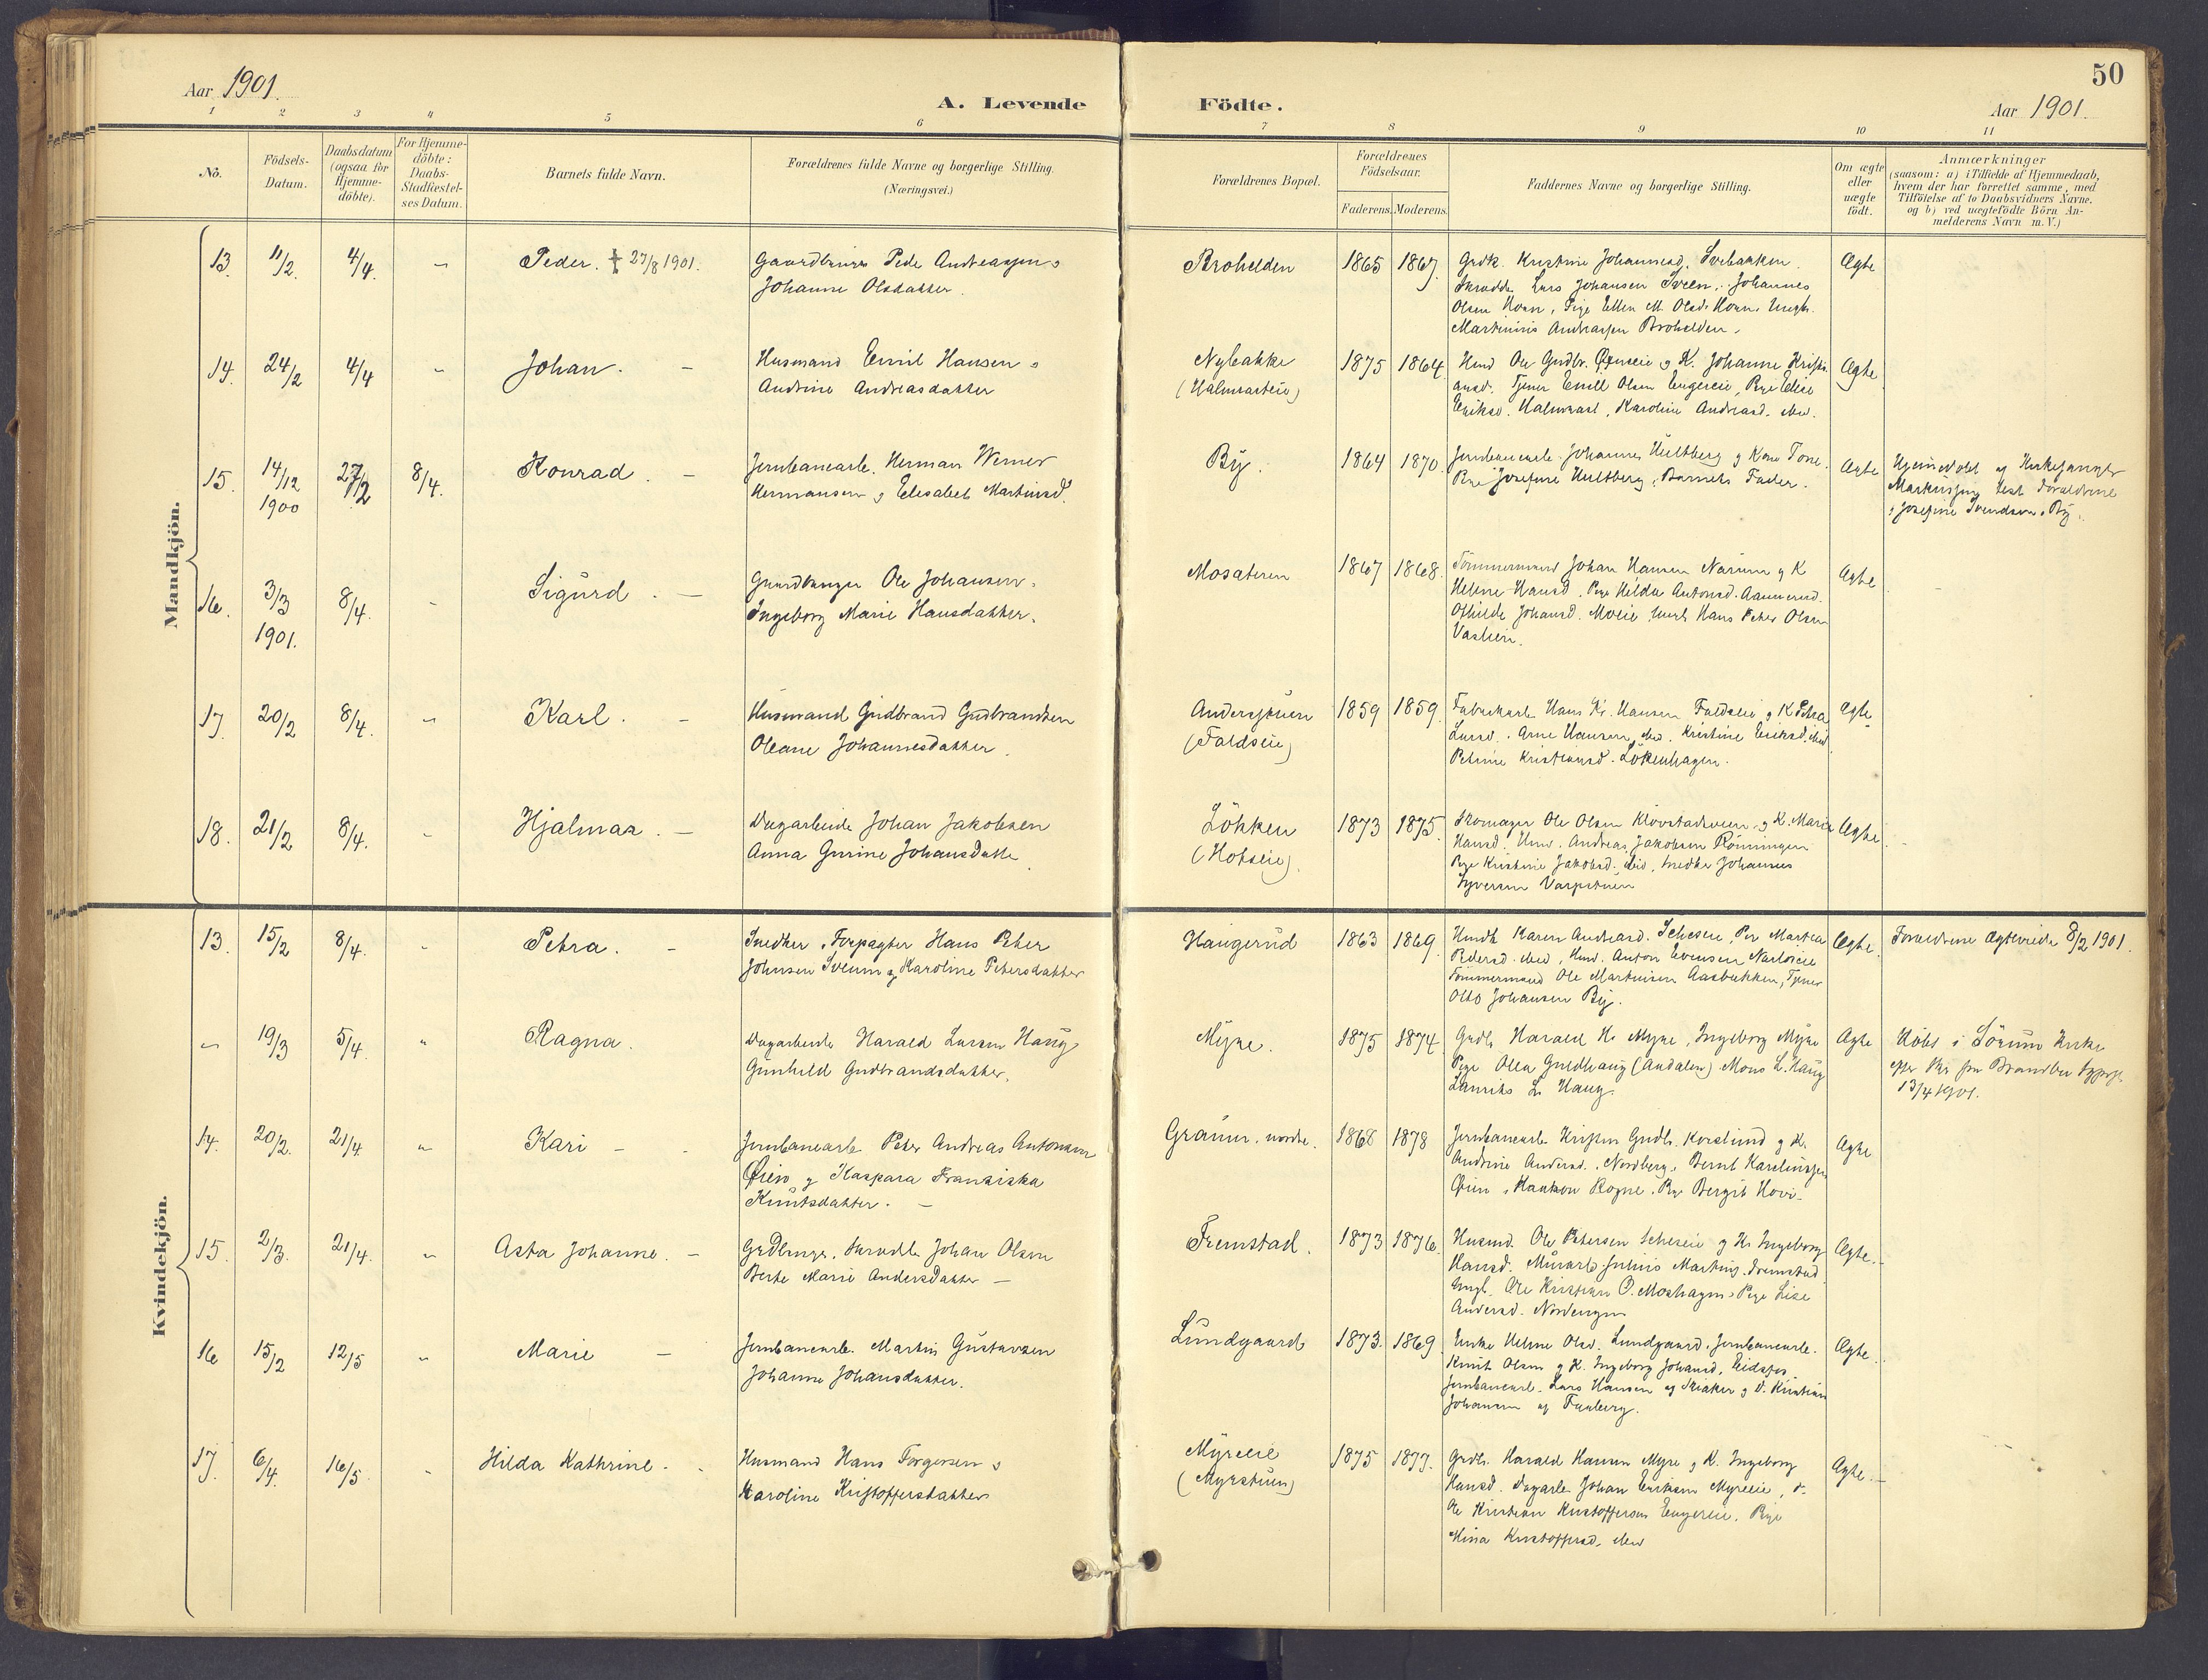 50
Aar 1901.
A. Levende Födte.
Aar 1901.
1 2 3 4 5 6 7 8 9 10 11
No.
Födsels-Datum.
Daabsdatum (ogsaa for Hjemme-döbte).
For Hjemme-döbte: Daabs-Stadfæstel-ses Datum.
Barnets fulde Navn.
Forældrenes fulde Navne og borgerlige Stilling.
(Næringsvei.)
Forældrenes Bopæl.
Forældrenes Födselsaar.
Faderens. Moderens.
Faddernes Navne og borgerlige Stilling.
Om ægte eller uægte födt.
Anmærkninger
(saasom: a) i Tilfælde af Hjemmedaab,
hvem der har forrettet samme, med
Tilföielse af to Daabsvidners Navne.
og b) ved uægtefödte Börn An-
melderens Navn m. V.)
Mandkjön.
13. 11/2. 4/4. " Peder. † 27/8 1901. Gaardbruger Peder Andreassen o
Johanne Olsdatter.
Brohelden 1865 1867. Grdk. Kristine Johannesd. Svebakken.
Skrædder Lars Johansen Sveen, Johannes
Olsen Hoan, Pige Ellen M. Olsd. Hoan, Ungk.
Martinius Andreassen Brohelden.
Ægte
14. 24/2 4/4 " Johan. Husmand Emil Hansen o
Andrine Andreasdatter
Nybakke
(Halmrasteie)
1875 1864. Hmd Ole Gudbr. og K. Johanne Kristi-
ansd. Tjener Emil Olsen Engereie, Pige Elise
Eriksd. Halmrast, Karoline Andreasd. ibid.
Ægte
15. 14/12 1900 27/2 8/4. Konrad. Jernbanearb. Herman Werner
Hermansen og Elisabet Martinsd.
By. 1864 1870. Jernbanearb. Johannes Hultberg og Kone Tone.
Pige Josefine Hultberg, Barnets Fader.
Ægte Hjemmedøbt af Kirkesanger
Markussen, test. Forældrene
o Josefine Svendsen, By.
16. 3/3 1901. 8/4. " Sigurd. Gaardbruger Ole Johansen.
Ingeborg Marie Hansdatter.
Mosateren 1867 1868. Tömmermand Johan Hansen Narum og K
Helene Hansd. Pige Hilda Antonsd. Aannerud.
Othilde Johansd. Moeie, Ungk. Hans Peter Olsen
Vaslien.
Ægte
17. 20/2 8/4. " Karl. Husmand Gudbrand Gudbrandsen
Oleane Johannesdatter.
Andersstuen
(Faldseie)
1859 1859. Fabrikarb. Hans Kr. Hansen Faldseie og K. Petra
Larsd. Arne Hansen, ibid. Kristine Eriksd. ibid
Petrine Kristiansd. Lökenhagen.
Ægte
18. 21/2 8/4. " Hjalmar. Dagarbeider Johan Jakobsen
Anna Gurine Johansdatter
Lökken
(Hofseie).
1873 1875. Skomager Ole Olsen Klövstadsveen og K. Marie
Hansd. Hmd. Andreas Jakobsen Rönningen
Pige Kristine Jakobsd. ibid, Snedker Johannes
Syversen Varpstuen
Ægte
Kvindekjön.
13. 15/2 8/4. " Petra. Snedker, Forpagter Hans Peter
Johnsen Sveum og Karoline Petersdatter
Haugerud 1863 1869. Hmdk Karen Andreasd. Pige Martea
Pedersd. ibid, Hmd. Anton Evensen
Tömmermand Ole Martinsen Aasbakken, Tjener
Otto Johansen By.
Ægte. Forældrene Ægteviede 8/2 1901.
" 19/3 5/4. " Ragna. Dagarbeider Harald Larsen Haug
Gunhild Gudbrandsdatter.
Myre. 1875 1874 Grdb. Harald H. Myre, Ingeborg Myre
Pige Olea Guldhaug (Audalen) Mons L. Haug
Laurits L. Haug.
Ægte Döbt i Sörum Kirke
efter fra Brandbu Sognepr.
13/4 1901.
14. 20/2. 21/4. " Kari Jernbanearb. Peter Andreas Antonsen
Øien og Kaspara Franziska
Knutsdatter.
Granum, nordre. 1868 1878 Jernbanearb. Kristen Gudb. Korslund og K.
Andrine Andersd. Nordberg, Bernt Karelinssen
Øien, Haakon Rogne. Pige Bergit Hovi.
Ægte
15. 2/3. 21/4. " Asta Johanne. Grdbruger, Skrædder Johan Olsen
Berte Marie Andersdatter
Fremstad. 1873 1876. Husmd. Ole Petersen og K. Ingeborg
Hansd. Murarb. Julius Martins. Fremstad
Ungk. Ole Kristian O. Moshagen, Pige Lise
Andersd. Nordengen
Ægte.
16 15/2 12/5 " Marie Jernbanearb. Martin Gustavsen
Johanne Johansdatter.
Lundgaard 1873. 1869 Enke Helene Olsd. Lundgaard, Jernbanearb.
Knut Olsen og K. Ingeborg Johansd. Eidsfos
Jernbanearb. Lars Hansen af Skiaker og d. Kristian
Johansen af Faaberg.
Ægte.
17. 6/4. 16/5. " Hilda Kathrine. Husmand Hans Torgersen o
Karoline Kristoffersdatter
Myreeie
(Myrstuen)
1875 1877. Grdb. Harald Hansen Myre og K. Ingeborg
Hansd. Dagarb. Johan Eriksen Myreeie, d.
Ole Kristian Kristoffersen Engereie, Pige
Mina Kristoffersd. ibid
Ægte.